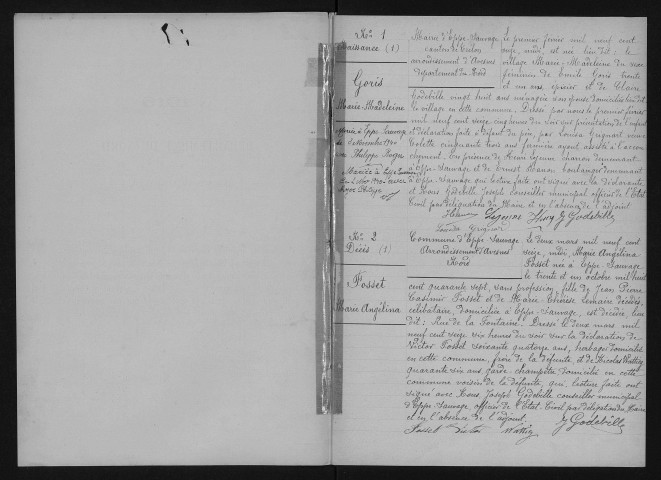 No 1
Naissance (1)
Goris
Marie-Madeleine
mariée à Eppe-Sauvage
le 3 Novembre
Philippe
Mariée à Eppe Sauvage
Mairie d'Eppe-Sauvage
canton de Trélon
arrondissement d'Avesnes
département du Nord
le premier février mil neuf cent
seize, midi, est née lieu dit: le
village Marie-Madeleine du sexe
féminin de Emile Goris trente
et un ans épicier et de
Godebille vingt huit ans ménagère son épouse domiciliés lieu dit
le village en cette commune. Dressé par nous le premier février
mil neuf cent seize cinq heures du soir sur présentation de l'enfant
et déclaration faite à défaut du père, par Louisa Grignart veuve
Colette cinquante trois ans fermière ayant assisté à l'accou
chement, en présence de Henri charron demeurant
à Eppe-Sauvage et de Ernest boulanger demeurant
à Eppe-Sauvage qui lecture faite ont signé avec la déclarante
et Nous Godebille Joseph conseiller municipal officier de l'Etat
Civil par délégation du Maire et en l'absence de l'adjoint
J Godebille
No 2
Décès (1)
Posset
Marie Angélina
Commune d'Eppe-Sauvage
Arrondissement d'Avesnes
Nord
le deux mars mil neuf cent
seize, midi, Marie Angélina
Posset née à Eppe-Sauvage
le trente et un octobre mil huit
cent quarante sept, sans profession, fille de Jean Pierre
Casimir Posset et de Marie-Thérèse Lemaire décédés,
célibataire, domiciliée à Eppe-Sauvage, est décédée, lieu
dit: Rue de la Fontaine. Dressé le deux mars mil
neuf cent seize six heures du soir sur la déclaration de
Victor Posset soixante quatorze ans, herbager domicilié
en cette commune, frère de la défunte et de Nicolas
quarante six ans garde-champêtre domicilié en cette
commune voisin de la défunte, qui, lecture faite ont
signé avec Nous Joseph Godebille conseiller municipal
d'Eppe-Sauvage officier de l'Etat-Civil par délégation du Maire
et en l'absence de l'adjoint.
Posset Victor J Godebille